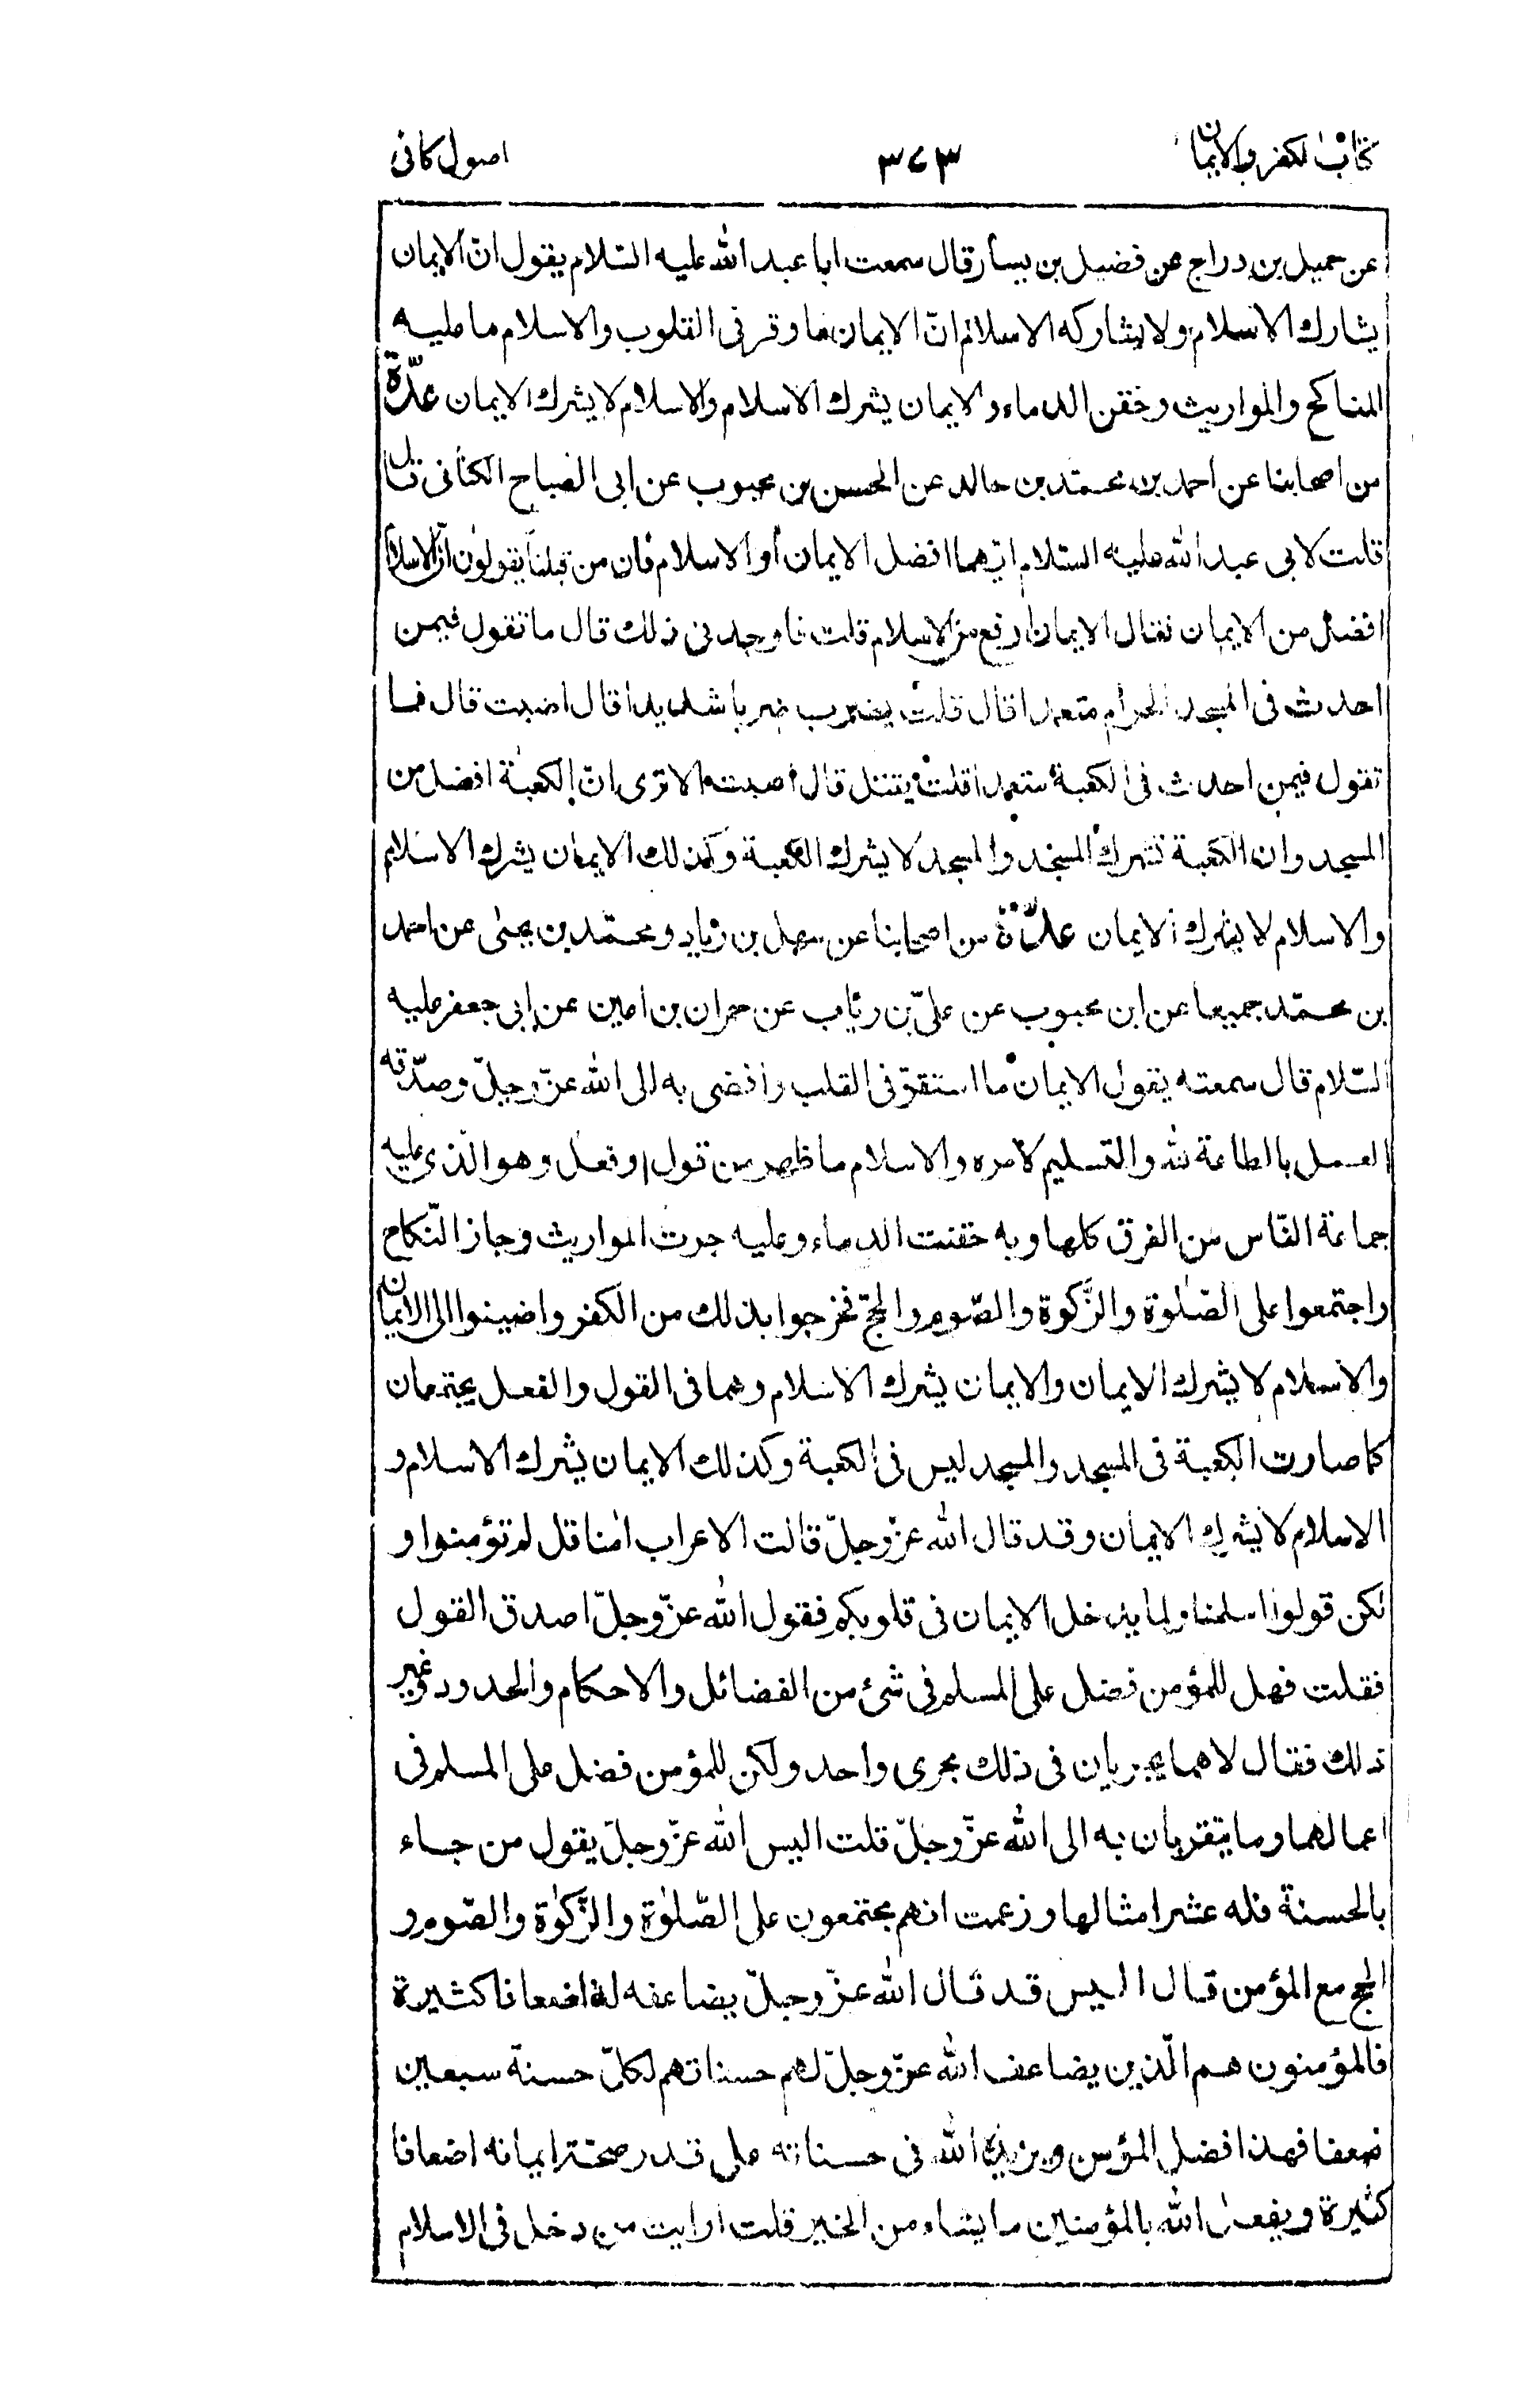 كتاب الكفر والايمان ٣٧٣ اصول كافى
عن جميل بن دراج عن فضيل بن يسار قال سمعت ابا عبد الله عليه السّلام يقول انّ الايمان
يشارك الاسلام ولا يشاركه الاسلام انّ الايمان ما وقر فى القلوب والاسلام ما عليه
المناكح والمواريث وحقن الدماء والايمان يشرك الاسلام والاسلام لا يشرك الايمان عدّة
من اصحابنا عن احمد بن محمّد بن خالد عن الحسن بن محبوب عن ابى الصباح الكنانى قال
قلت لابى عبد الله عليه السّلام ايّهما افضل الايمان أو الاسلام فان من قبلنا يقولون انّ الاسلام
افضل من الايمان فقال الايمان ارفع من الاسلام قلت فاوجدنى ذلك قال ما تقول فيمن
احدث فى المسجد الحرام متعمدا قال قلت يضرب ضربا شديدا قال اصبت قال فما
تقول فيمن احدث فى الكعبة متعمدا قلت يقتل قال اصبت الا ترى انّ الكعبة افضل من
المسجد وان الكعبة تشرك المسجد والمسجد لا يشرك الكعبة وكذلك الايمان يشرك الاسلام
والاسلام لا يشرك الايمان عدّة من اصحابنا عن سهل بن زياد ومحمّد بن يحيى عن احمد
بن محمّد جميعا عن ابن محبوب عن علىّ بن رئاب عن حمران بن اعين عن ابى جعفر عليه
السّلام قال سمعته يقول الايمان ما استقرّ فى القلب وافضى به الى الله عزّ وجلّ وصدّقه
العمل بالطاعة لله والتسليم لامره والاسلام ما ظهر من قول او فعل وهو الّذى عليه
جماعة النّاس من الفرق كلها وبه حقنت الدماء وعليه جرت المواريث وجاز النّكاح
واجتمعوا على الصّلوة والزّكوة والصّوم والحجّ فخرجوا بذلك من الكفر واضيفوا الى الايمان
والاسلام لا يشرك الايمان والايمان يشرك الاسلام وهما فى القول والفعل يجتمعان
كما صارت الكعبة فى المسجد والمسجد ليس فى الكعبة وكذلك الايمان يشرك الاسلام و
الاسلام لا يشرك الايمان وقد قال الله عزّ وجلّ قالت الاعراب امنا قل لم تؤمنوا و
لكن قولوا اسلمنا ولما يدخل الايمان فى قلوبكم فقول الله عزّ وجلّ اصدق القول
فقلت فهل للمؤمن فضل على المسلم فى شئ من الفضائل والاحكام والحدود وغير
ذلك فقال لا هما يجريان فى ذلك مجرى واحد ولكن للمؤمن فضل على المسلم فى
اعمالهما وما يتقربان به الى الله عزّ وجلّ قلت اليس الله عزّ وجلّ يقول من جاء
بالحسنة فله عشر امثالها وزعمت انهم مجتمعون على الصّلوة والزّكوة والصّوم و
الحج مع المؤمن قال اليس قد قال الله عزّ وجلّ يضاعفه له اضعافا كثيرة
فالمؤمنون هم الّذين يضاعف الله عزّ وجلّ لهم حسناتهم لكلّ حسنة سبعين
ضعفا فهذا فضل المؤمن ويزيده الله فى حسناته على قدر صحّة ايمانه اضعافا
كثيرة ويفعل الله بالمؤمنين ما يشاء من الخير قلت ارايت من دخل فى الاسلام